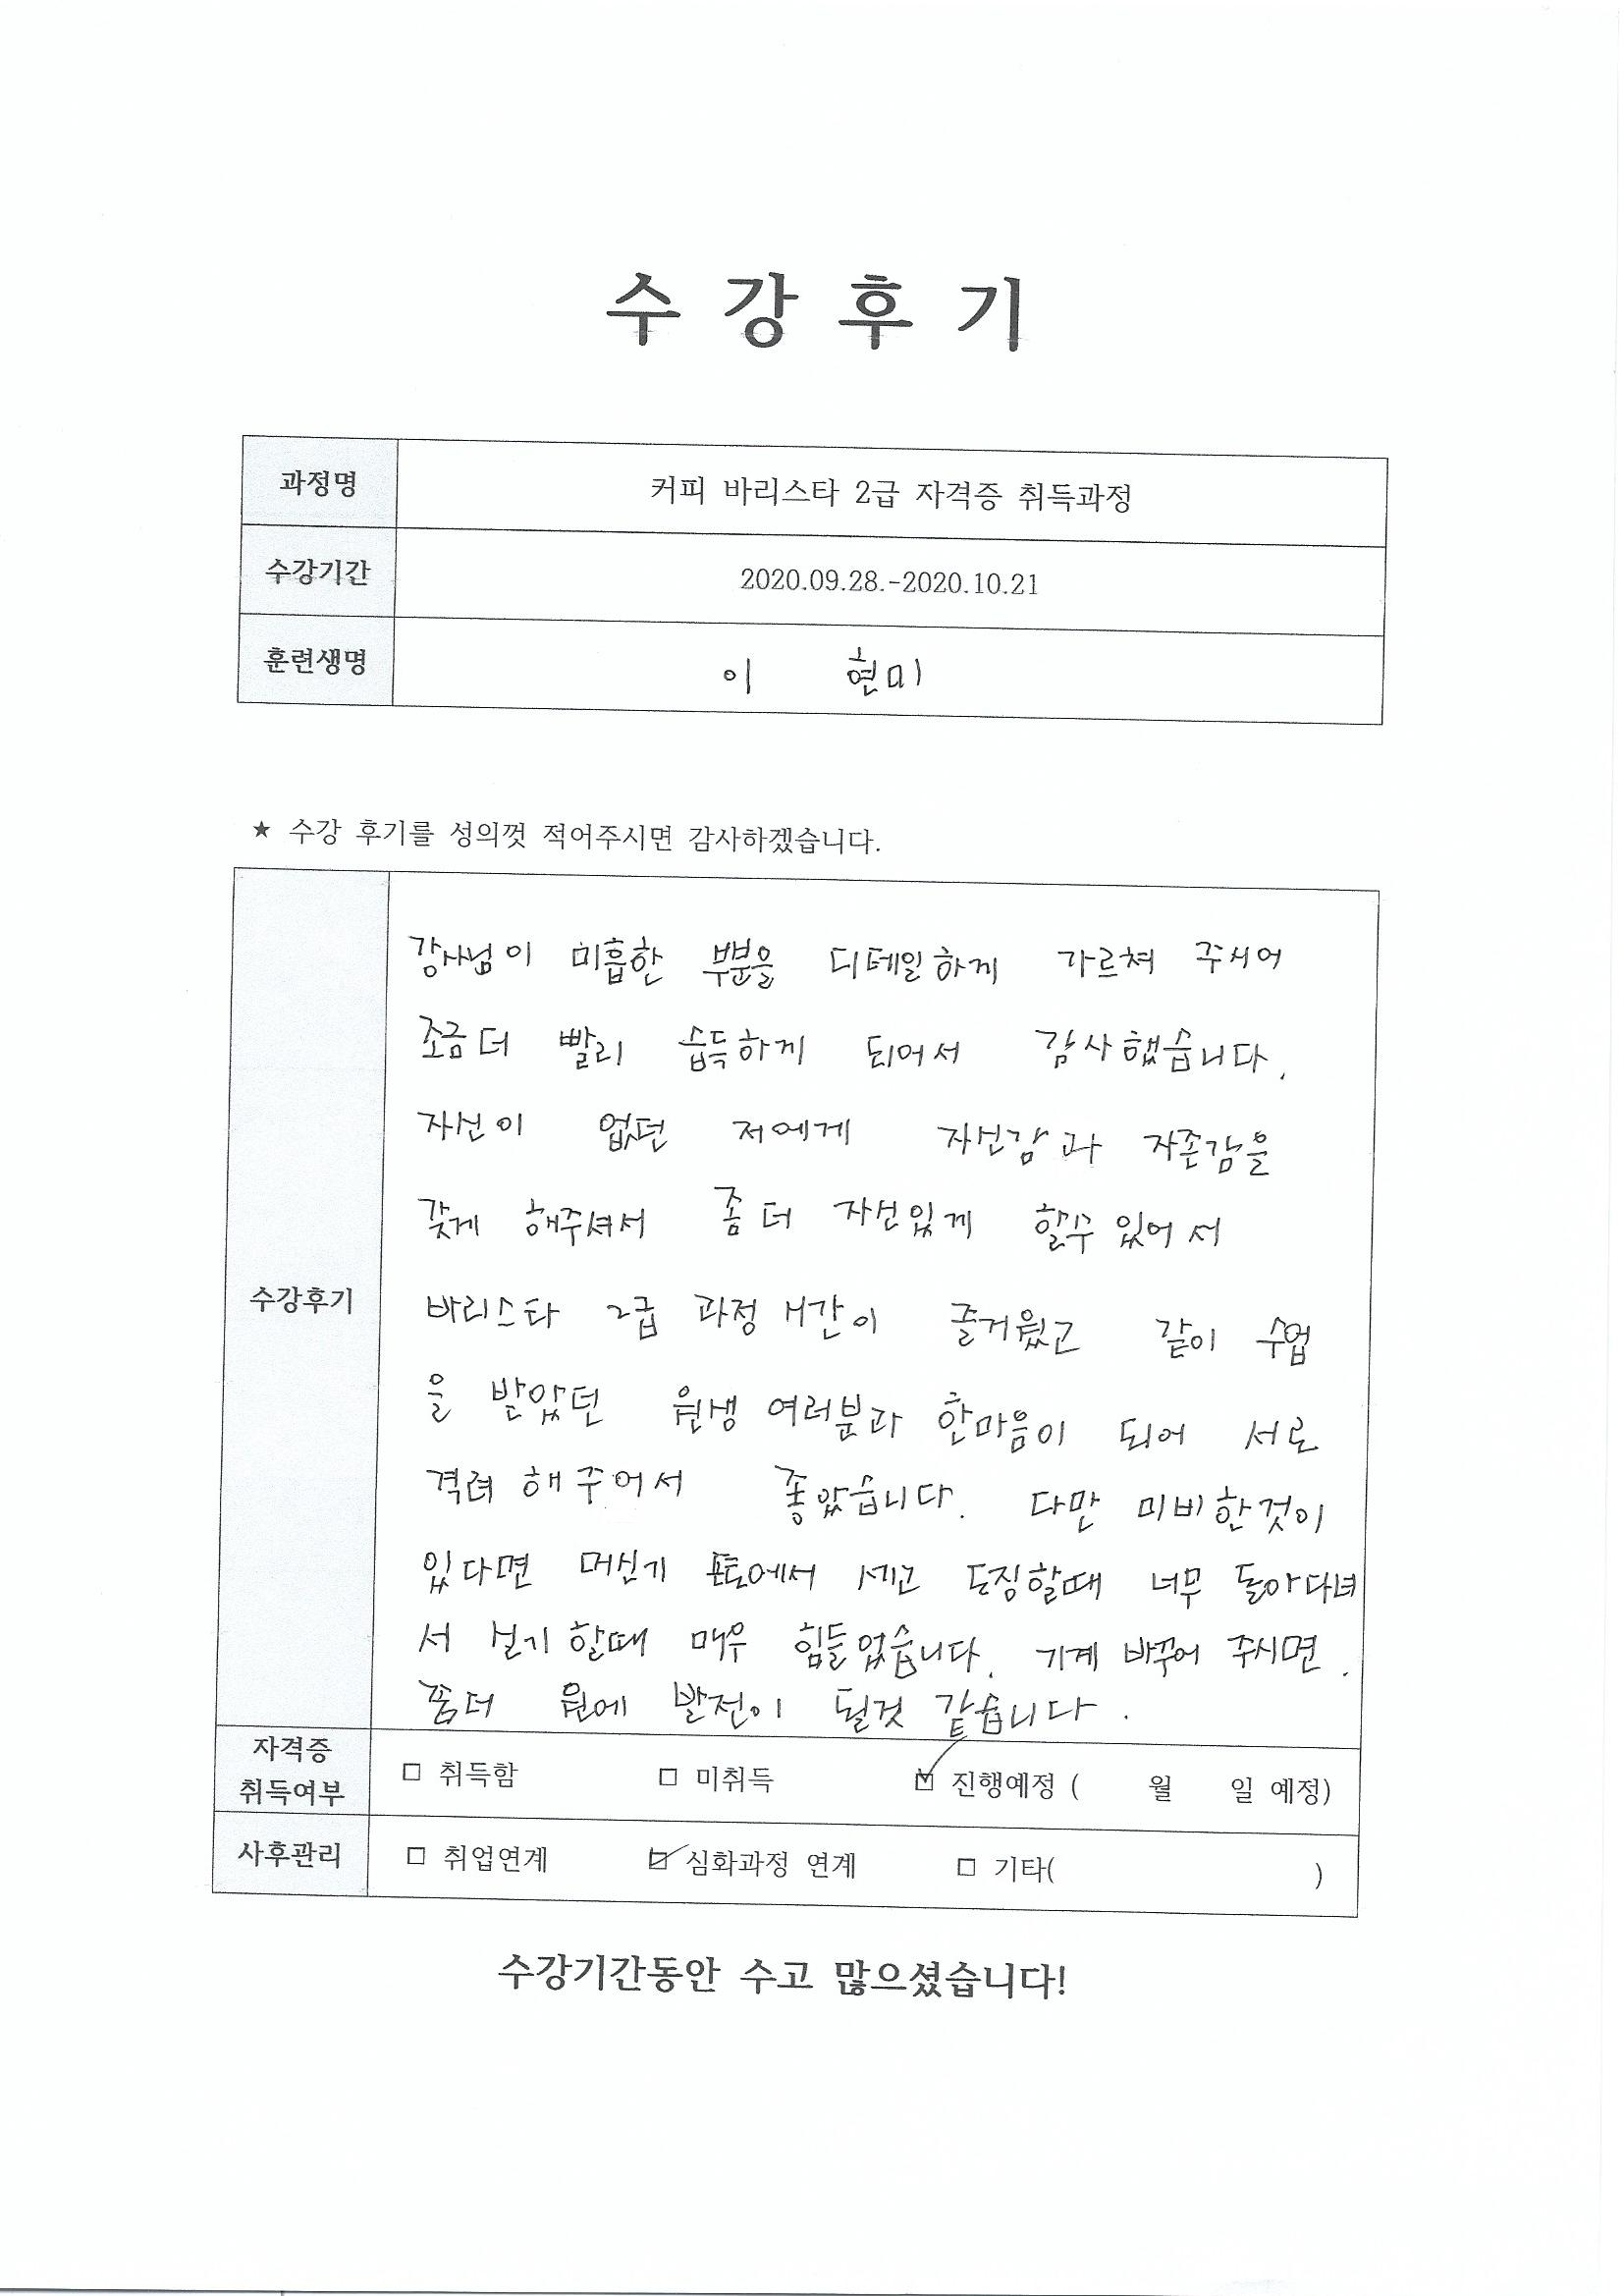 수강후기
과정명 커피 바리스타 2급 자격증 취득과정
수강기간 2020.09.28.-2020.10.21
훈련생명 이 현미
★ 수강 후기를 성의껏 적어주시면 감사하겠습니다.
수강후기
강사님이 미흡한 부분을 디테일하게 가르쳐 주시어
조금더 빨리 습득하게 되어서 감사했습니다.
자신이 없던 저에게 자신감과 자존감을
갖게 해주셔서 좀더 자신있게 할수있어서
바리스타 2급 과정 시간이 즐거웠고 같이 수업
을 받았던 원생 여러분과 한마음이 되어 서로
격려해주어서 좋았습니다. 다만 미비한것이
있다면 머신기 포토에서 도징할때 너무 돌아다녀
서 하기 할때 매우 힘들었습니다. 기계 바꾸어 주시면.
좀더 원에 발전이 될것 같습니다.
자격증 취득여부 □ 취득함 □ 미취득 ☑ 진행예정 ( 월 일 예정)
사후관리 □ 취업연계 ☑ 심화과정 연계 □ 기타( )
수강기간동안 수고 많으셨습니다!